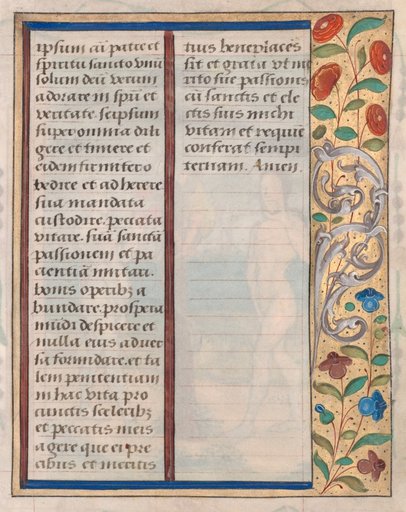 ipsum cū patre et
spiritu sancto vnū
solum deū verum
adorare in spū et
veritate. seipsum
super omnia dili
gere et timere et
eidem firmiter o
bedire et adherere.
sua mandata
custodire. peccata
vitare. suā sanctā
passionem et pa
cientiā imitari.
bonis operibꝫ a
bundare. prospera
mūdi despicere et
nulla eius aduer
sa formidare. et ta
lem penitentiam
in hac vita pro
cunctis sceleribꝫ
et peccatis meis
agere que ei pre
cibus et meritis
tius beneplaces
sit et grata vt me
rito sue passionis
cū sanctis et ele
ctis suis michi
vitam et requiē
conferat sempi
ternam. Amen.